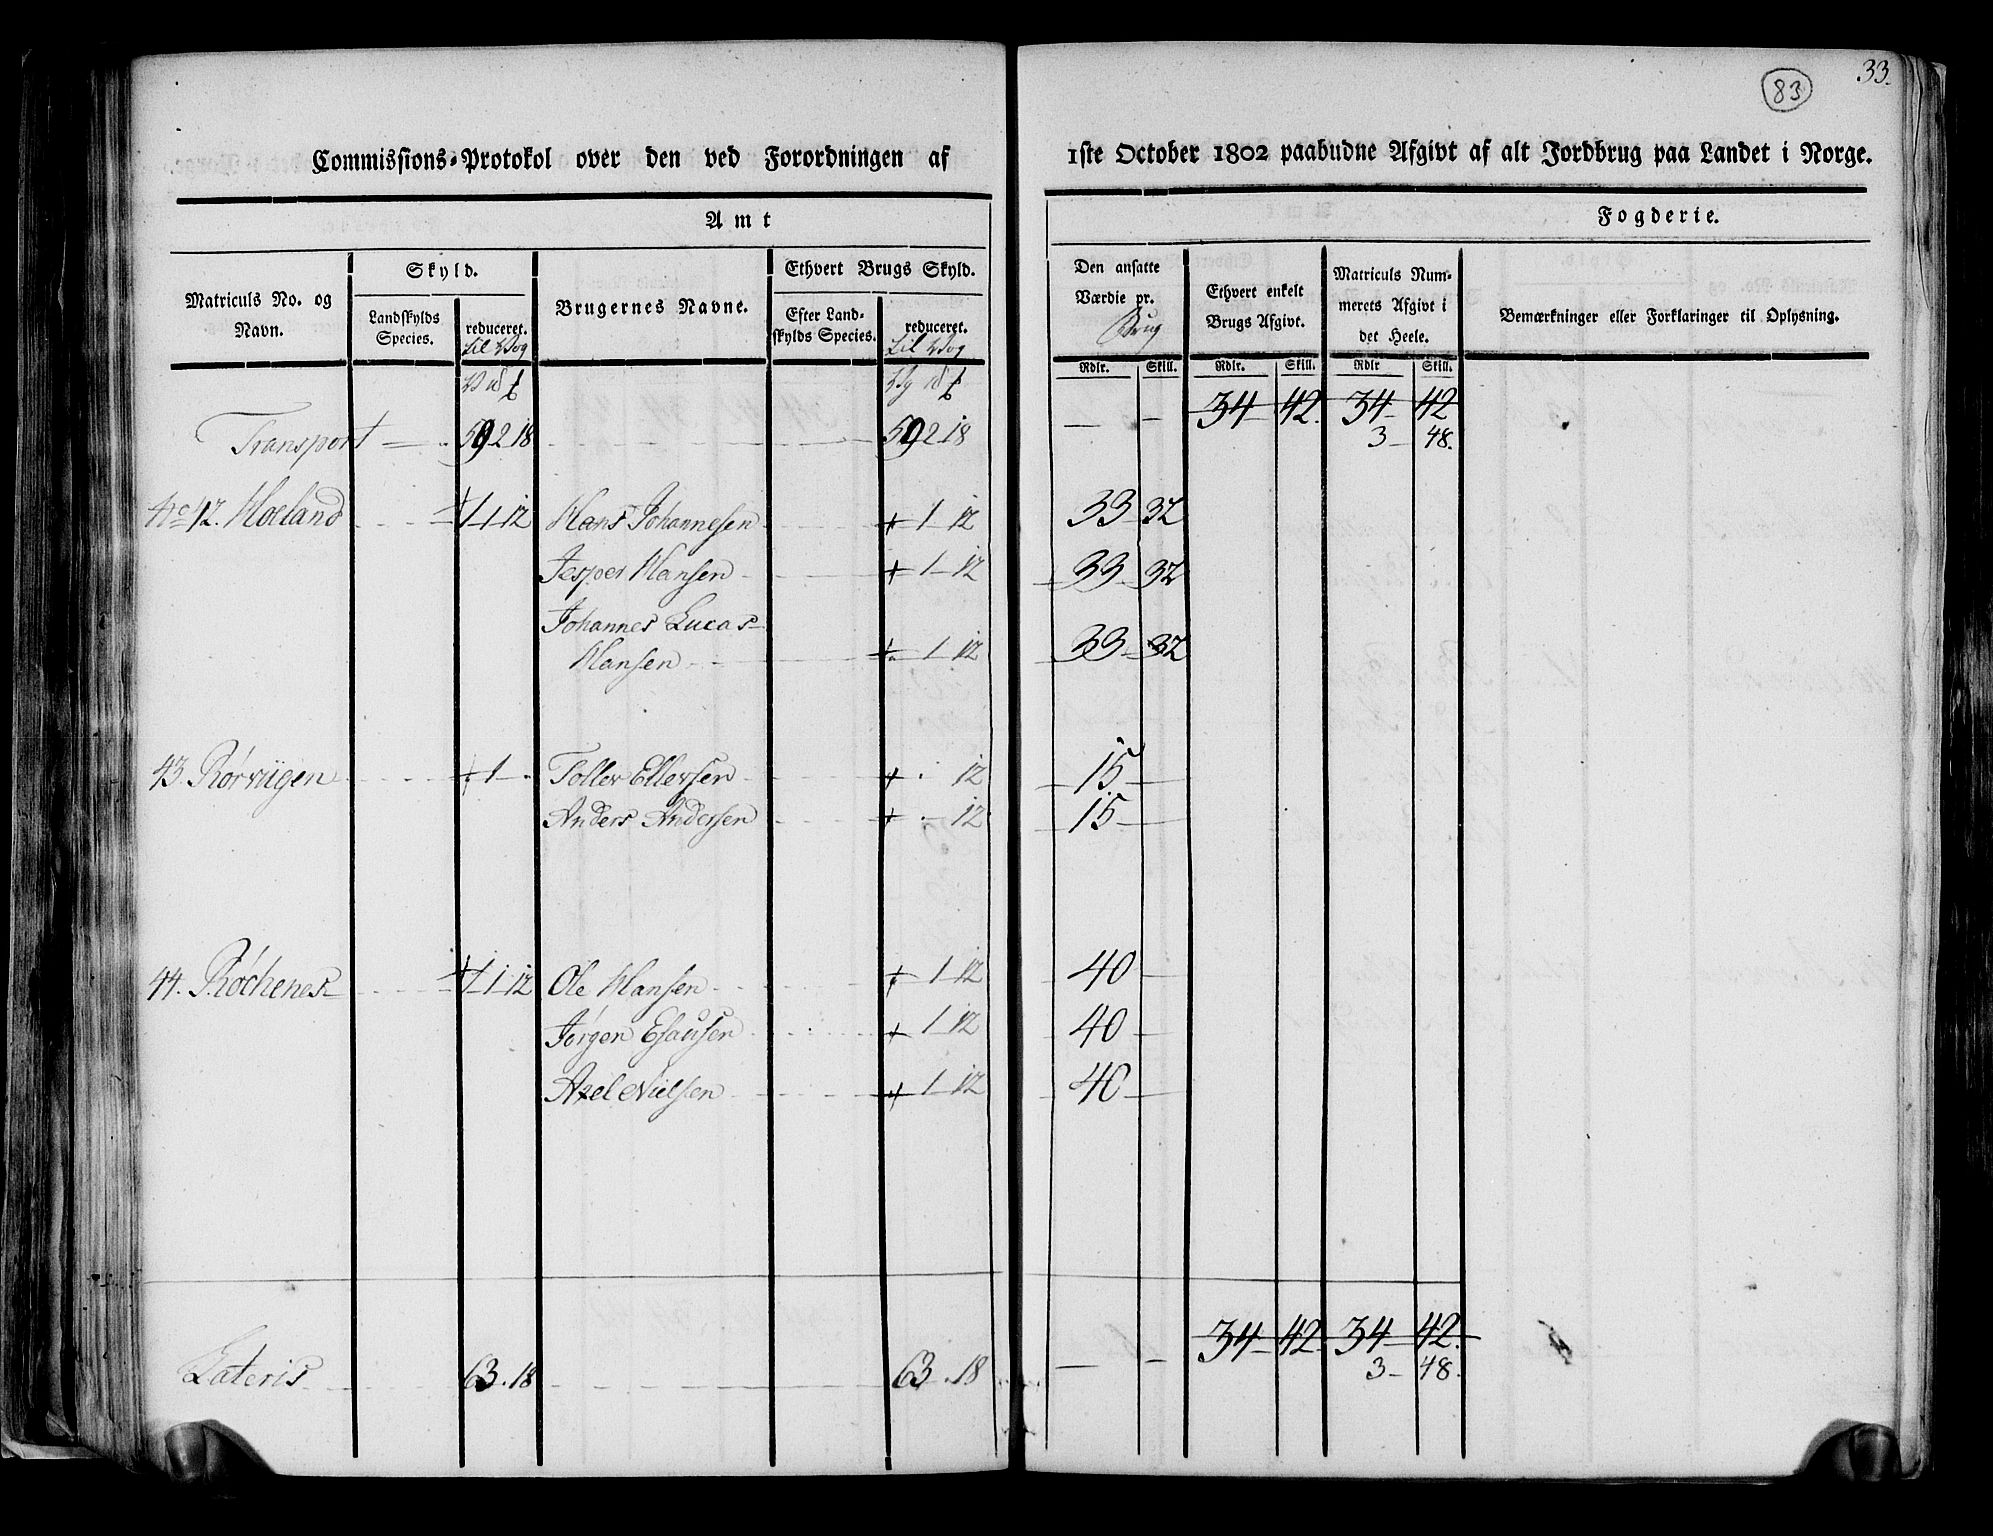 33.
83
Commissions-Protokol over den ved Forordningen af 1ste October 1802 paabudne Afgivt af alt Jordbrug paa Landet i Norge.
Amt
Fogderie.
Matriculs No. og Navn.
Skyld.
Landskylds Species.
reduceret. til Vog
Brugernes Navne.
Ethvert Brugs Skyld.
Efter Landskylds Species.
reduceret. til Vog
Den ansatte Værdie pr. Brug
Ethvert enkelt Brugs Afgivt.
Matriculs Nummerets Afgivt i det Heele.
Bemærkninger eller Forklaringer til Oplysning.
Rdlr. Skill. Rdlr. Skill. Rdlr Skill.
Transport 59 2 18 59 2 18 — — 34 42. 34 42
3 — 48.
No 42. Hoeland 1 1 12 Hans Johannesen + 1 12 33 32
Jesper Hansen + 1 12 33 32
Johannes Lucas
Hansen + 1 12 33 32
43. Rørviigen + 1 . Toller Ellersen + . 12 15 —
Anders Andersen + . 12 15 —
44. Røchenes 1 1 12 Ole Hansen + 1 12 40 —
Jørgen Esausen + 1 12 40 —
Axel Nielsen + 1 12 40 —
Lateris 63 . 18 63 . 18 — — 34 42. 34 42.
3 — 48.